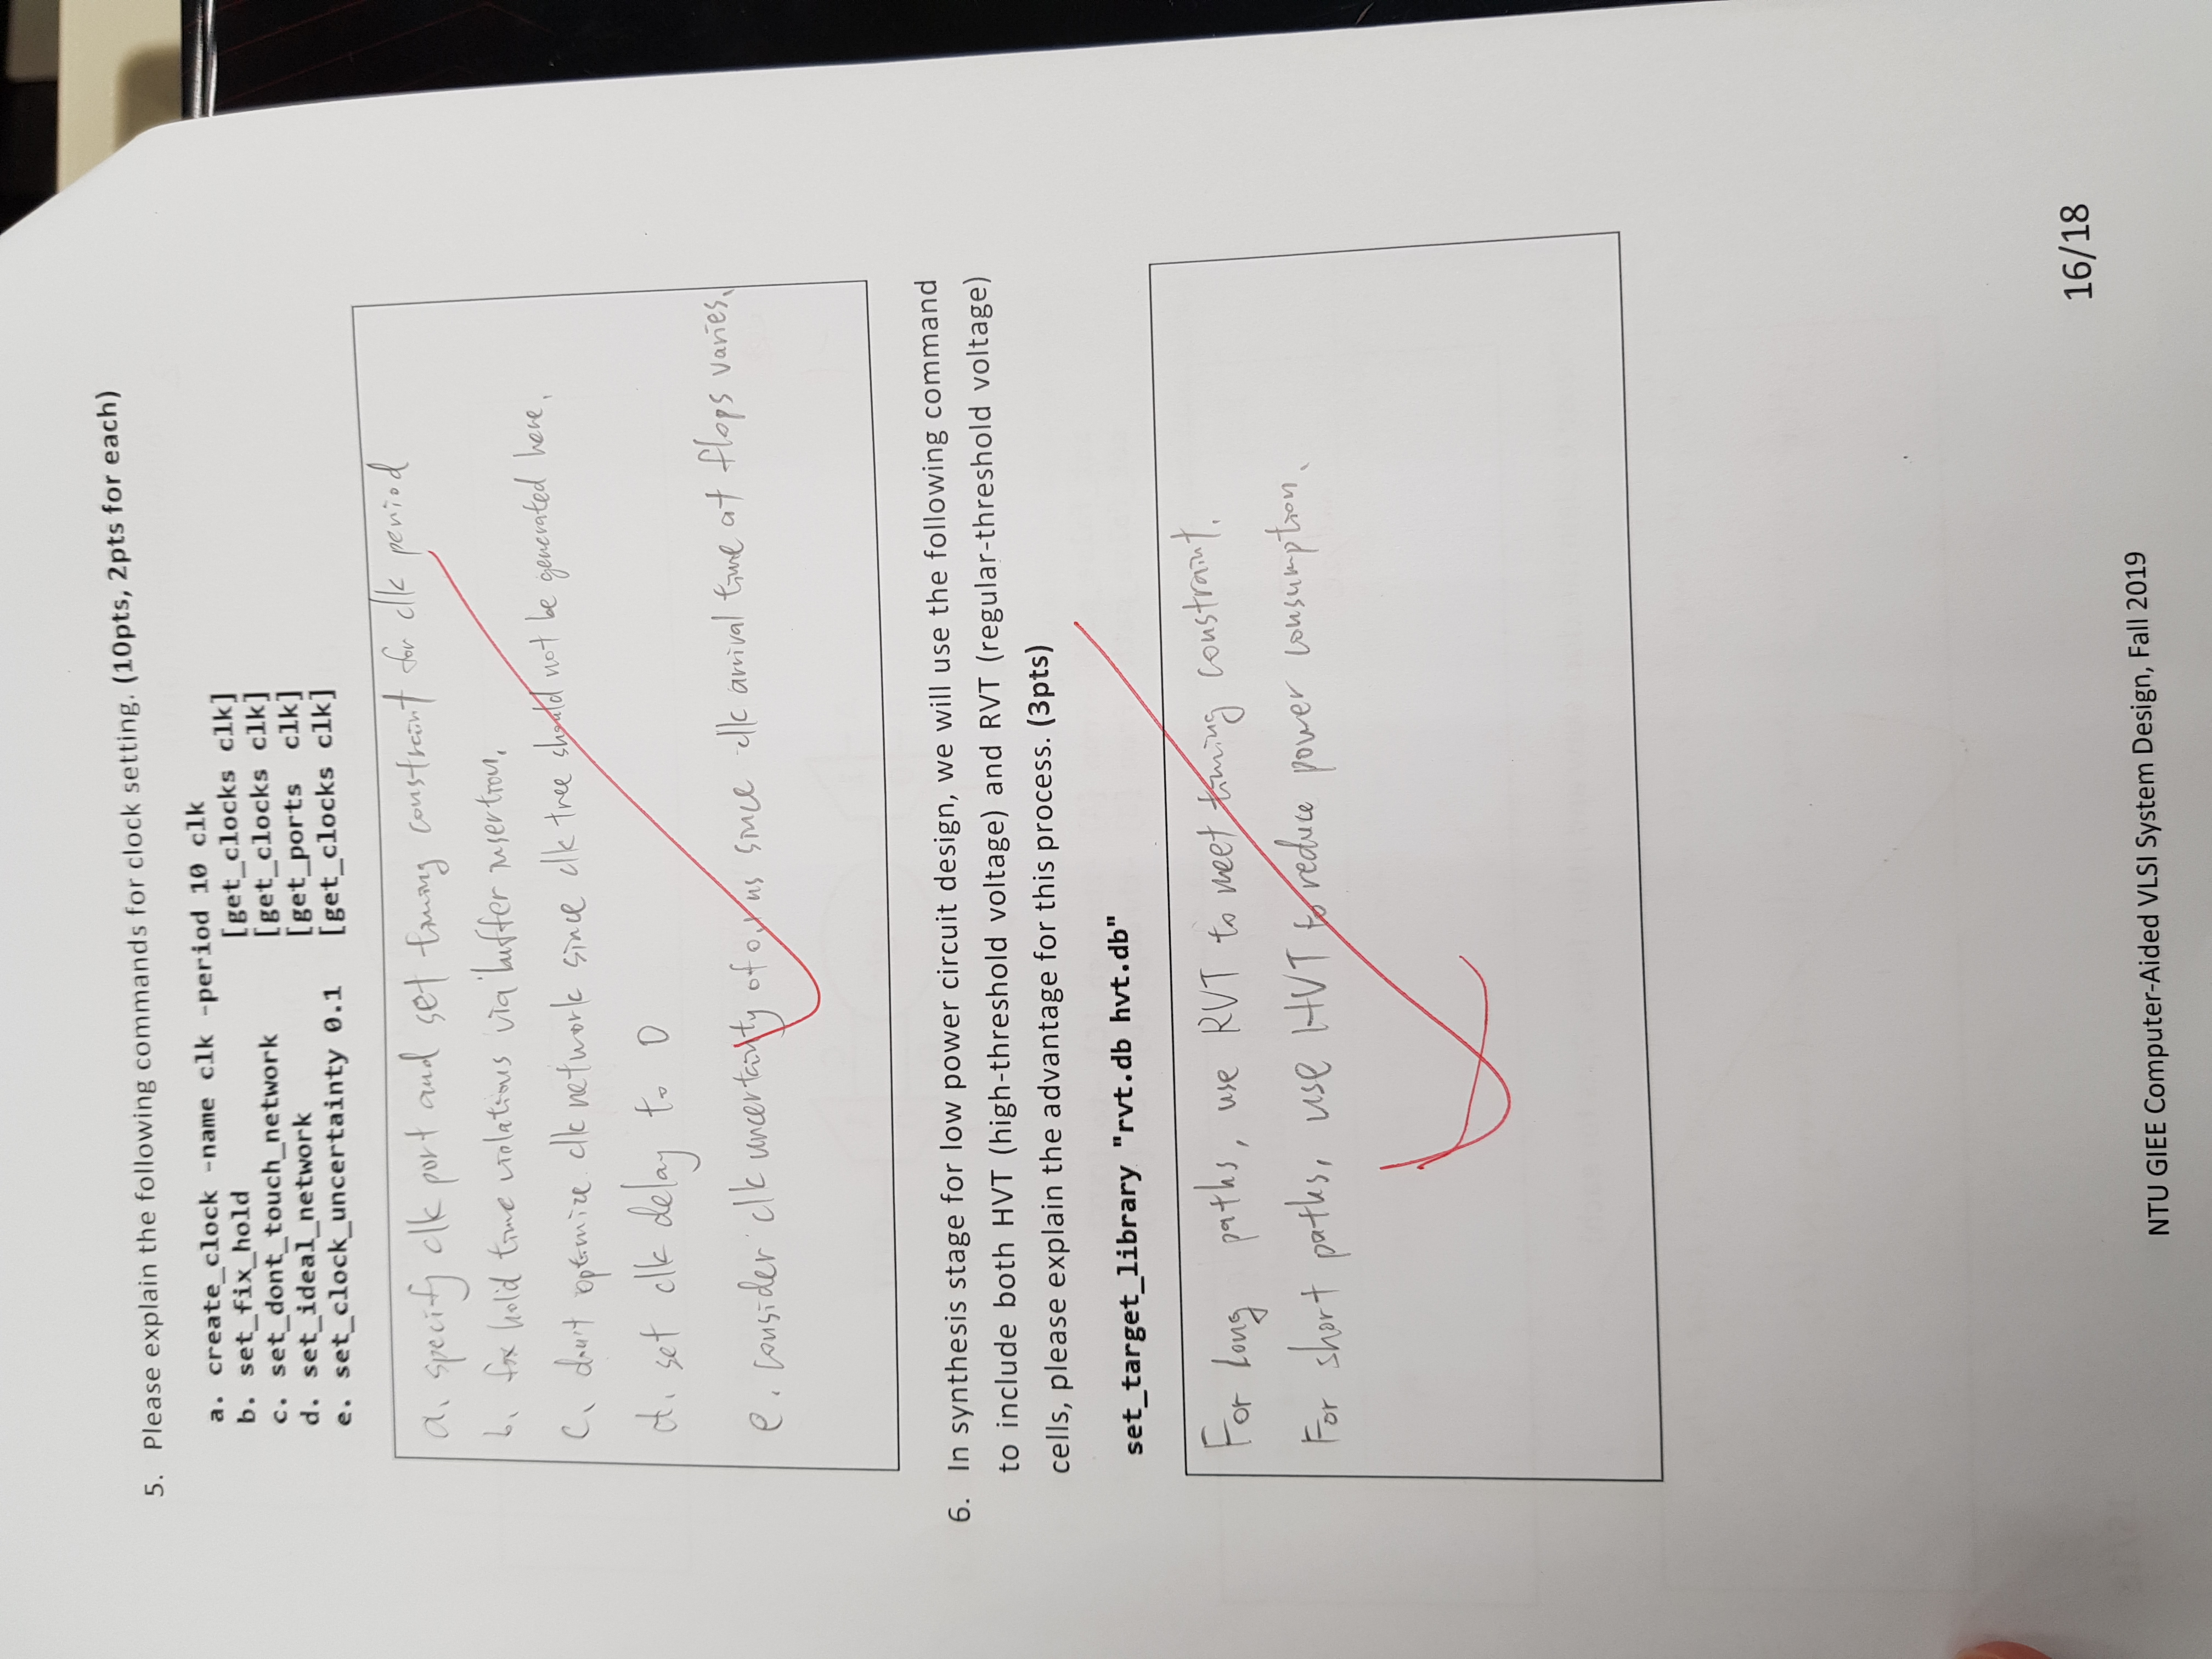 5. Please explain the following commands for clock setting. (10pts, 2pts for each)
a. create_clock -name clk -period 10 clk
b. set_fix_hold [get_clocks clk]
c. set_dont_touch_network [get_clocks clk]
d. set_ideal_network [get_ports clk]
e. set_clock_uncertainty 0.1 [get_clocks clk]
a. specify clk port and set timing constraint for clk period
b. fix hold time violations via buffer insertion.
c. don't optimize clk network since clk tree should not be generated here.
d. set clk delay to 0
e. consider clk uncertainty of 0.1 ns since clk arrival time at flops varies.
6. In synthesis stage for low power circuit design, we will use the following command
to include both HVT (high-threshold voltage) and RVT (regular-threshold voltage)
cells, please explain the advantage for this process. (3pts)
set_target_library "rvt.db hvt.db"
For long paths, use RVT to meet timing constraint.
For short paths, use HVT to reduce power consumption.
16/18
NTU GIEE Computer-Aided VLSI System Design, Fall 2019